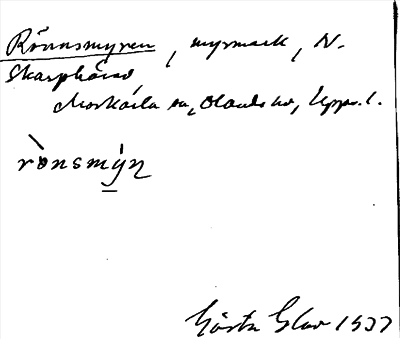 Rönnsmyren, myrmark, N.
Skarphäred,
Morkarla sn, Olands hd, Upps. l.
rònsmýn
Gösta Elov 1937